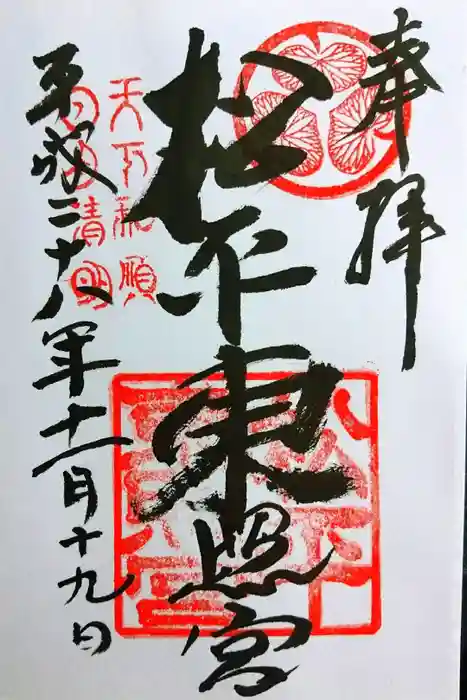 奉拝
松平東照宮
天下和順
日月清明
平成二十八年十一月十九日